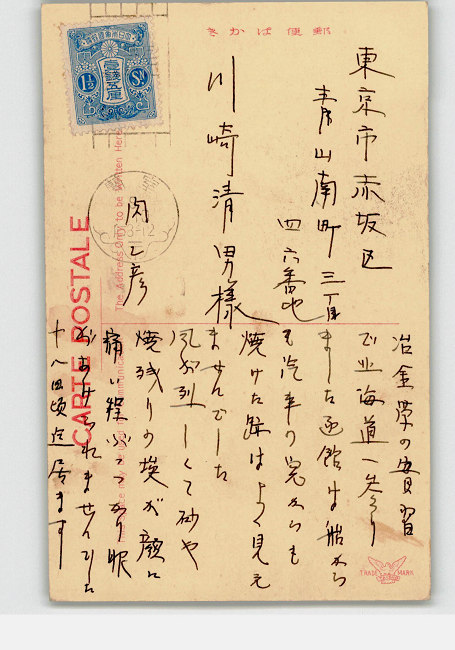 きかは便郵
東京市赤坂区
青山南町三丁目
四六番地
川崎清男様
関乙彦
冶金学の実習
で北海道へ参り
ました函館は船から
も汽車の窓からも
焼けた跡はよく見え
ませんでした
風が烈しくて砂や
焼残りの埃が顔に
痛い程ぶつかり眼
があけられませんでした
十八日頃迄居ます
CARTE POSTALE
The Address Only to be Written Here.
1½ Sn
壹錢五厘
TRADE MARK